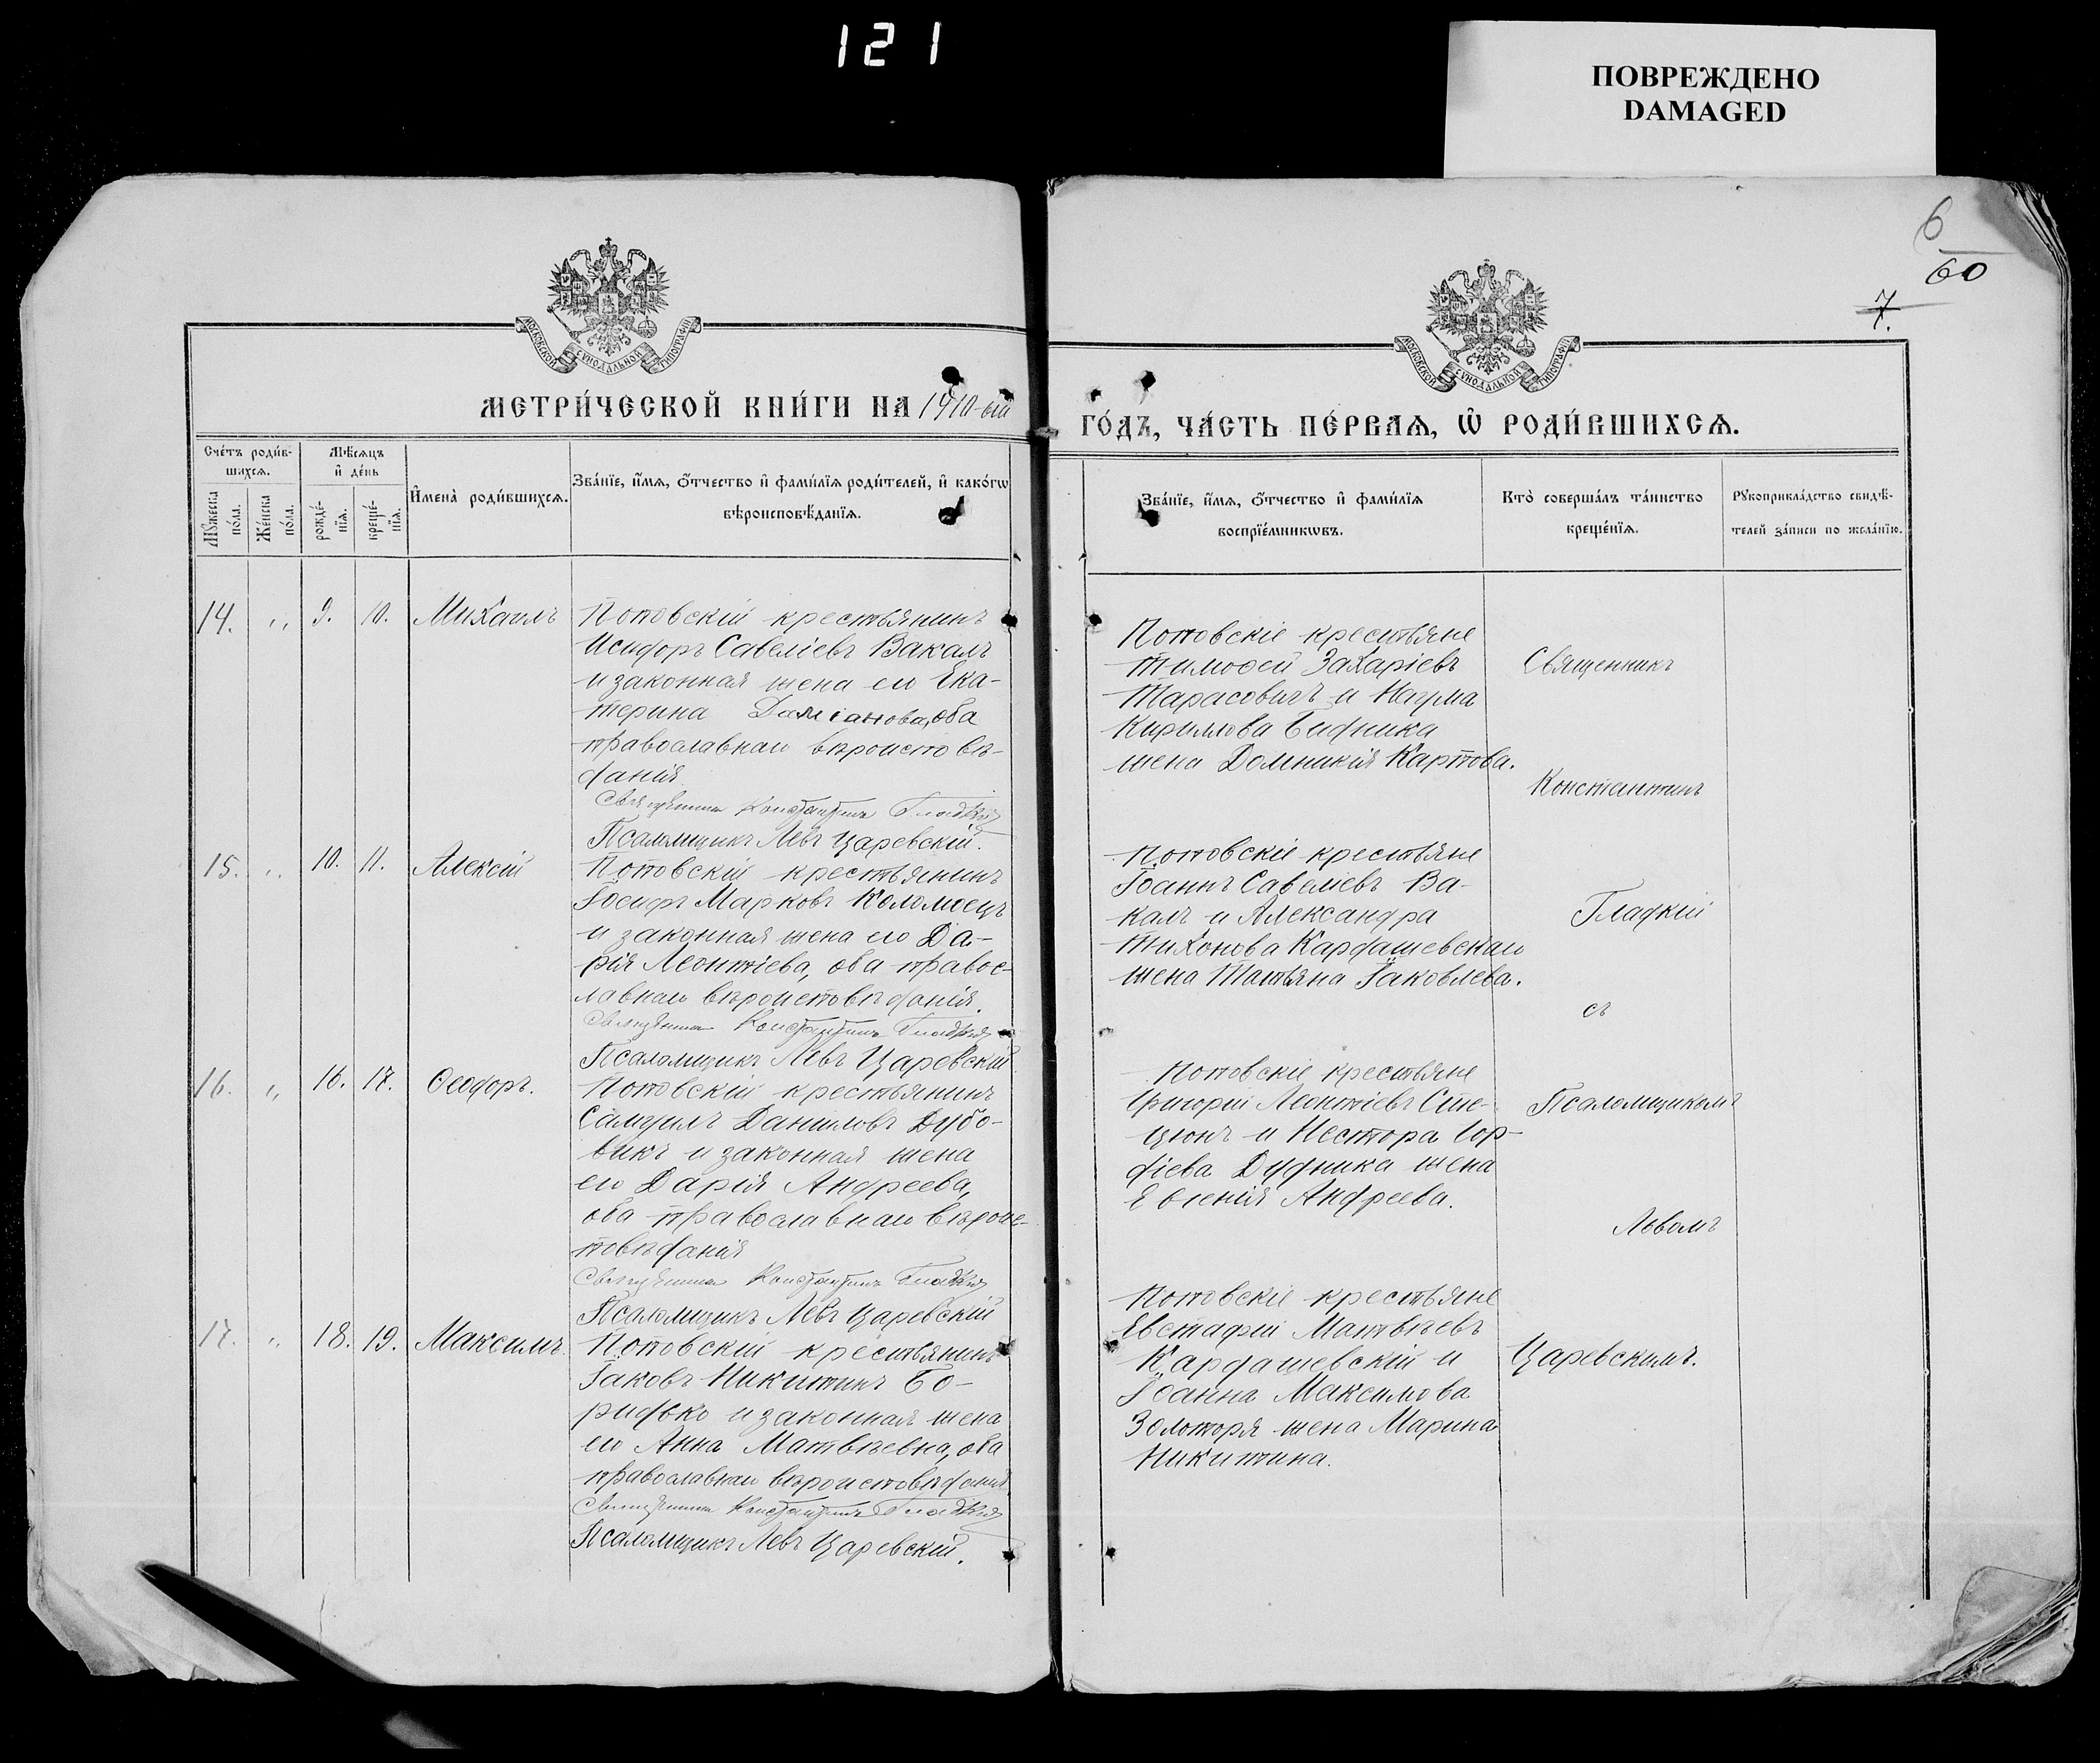 121
ПОВРЕЖДЕНО
DAMAGED
6
60
7.
МОСКОВСКОЙ СѴНОДАЛЬНОЙ ТИПОГРАФІИ
МОСКОВСКОЙ СѴНОДАЛЬНОЙ ТИПОГРАФІИ
МЕТРИ́ЧЕСКОЙ КНИ́ГИ НА 1910-ый
ГО́ДЪ, ЧА́СТЬ ПЕ́РВАѦ, Ѡ҆ РОДИ́ВШИХСѦ.
Сче́тъ роди́в-
шихсѧ.
Мѣ́сѧцъ
и҆ де́нь
И҆мена̀ роди́вшихсѧ.
Зва́нїе, и҆́мѧ, ѻ҆́тчество и҆ фами́лїѧ роди́телей, и҆ како́гѡ
вѣроисповѣ́данїѧ.
Мꙋ́жеска
по́ла.
Же́нска
по́ла.
рожде́-
нїѧ.
креще́-
нїѧ.
Зва́нїе, и҆́мѧ, ѻ҆́тчество и҆ фами́лїѧ
воспрїе́мникѡвъ.
Кто̀ соверша́лъ та́инство
креще́нїѧ.
Рꙋкоприкла́дство свидѣ́-
телей за́писи по жела́нїю.
14. „ 9. 10. Михаилъ
Поповскій крестьянинъ
Исидоръ Савеліевъ Вакалъ
и законная жена его Ека-
терина Даміанова, оба
православнаго вѣроисповѣ-
данія
Священникъ Константинъ Гладкій
Псаломщикъ Левъ Царевскій.
Поповскіе крестьяне
Тимоѳей Захаріевъ
Тарасовичъ и Наума
Кириллова Бидника
жена Домникія Карпова.
15. „ 10. 11. Алексій
Поповскій крестьянинъ
Іосифъ Марковъ Коломоецъ
и законная жена его Да-
рія Леонтіева, оба правос-
лавнаго вѣроисповѣданія.
Священникъ Константинъ Гладкій
Псаломщикъ Левъ Царевскій
Поповскіе крестьяне
Іоаннъ Савеліевъ Ва-
калъ и Александра
Тихонова Кардашевскаго
жена Татьяна Іаковлева.
16. „ 16. 17. Ѳеодоръ.
Поповскій крестьянинъ
Самуилъ Даниловъ Дубо-
викъ и законная жена
его Дарія Андреева,
оба православнаго вѣроис-
повѣданія
Священникъ Константинъ Гладкій
Псаломщикъ Левъ Царевскій
Поповскіе крестьяне
Григорій Леонтіевъ Сте-
цюнъ и Нестора Гор-
діева Дудника жена
Евгенія Андреева.
17. „ 18. 19. Максимъ
Поповскій крестьянинъ
Іаковъ Никитинъ Бо-
ридько и законная жена
его Анна Матвѣевна, оба
православнаго вѣроисповѣданія
Священникъ Константинъ Гладкій
Псаломщикъ Левъ Царевскій.
Поповскіе крестьяне
Евстафій Матвѣевъ
Кардашевскій и
Іоанна Максимова
Золоторя жена Марина
Никитина.
Священникъ
Константинъ
Гладкій
съ
Псаломщикомъ
Львомъ
Царевскимъ.